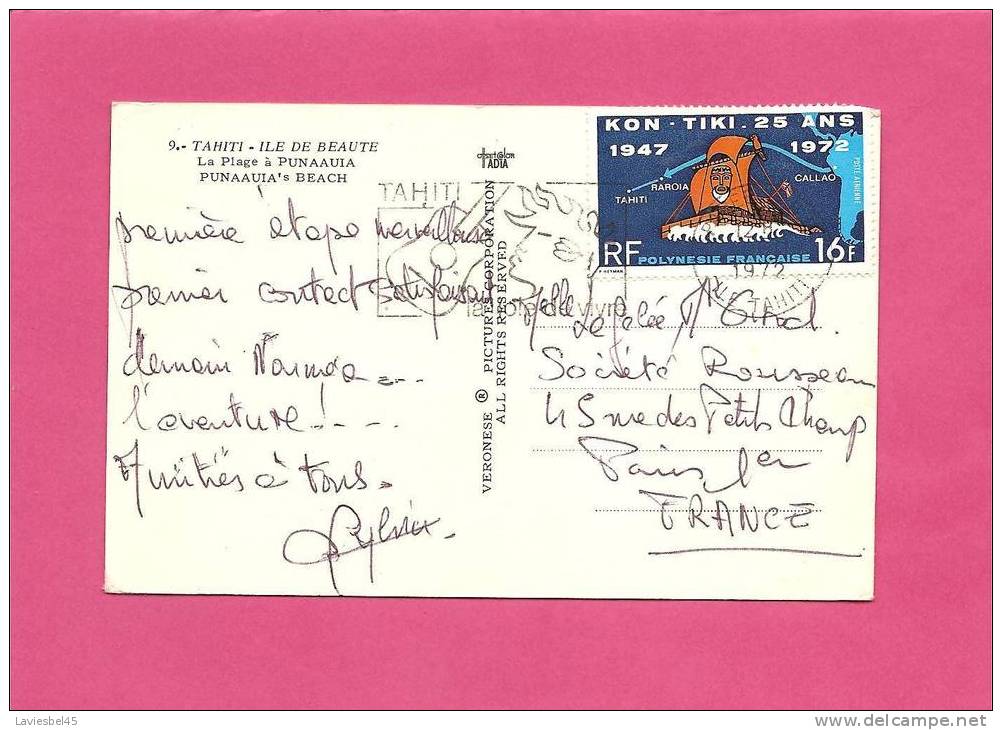 9.- TAHITI - ILE DE BEAUTE
La Plage à PUNAAUIA
PUNAAUIA's BEACH
première étape merveilleuse
premier contact satisfaisant
demain Nouméa...
l'aventure!....
Amitiés à tous.
Sylvie
VERONESE ® PICTURES CORPORATION
ALL RIGHTS RESERVED
TAHITI
la de vivre
KON - TIKI - 25 ANS
1947 1972
CALLAO
RAROIA
TAHITI
POSTE AERIENNE
RF POLYNESIE FRANÇAISE 16F
P. HEYMAN
12
1972
TAHITI
Melle
Société Rousseau
45 rue des Petits Champ
Paris 1er
FRANCE
Laviesbel45
www.delcampe.net